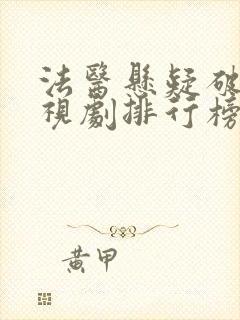 法醫懸疑破
視劇排行榜
黃甲